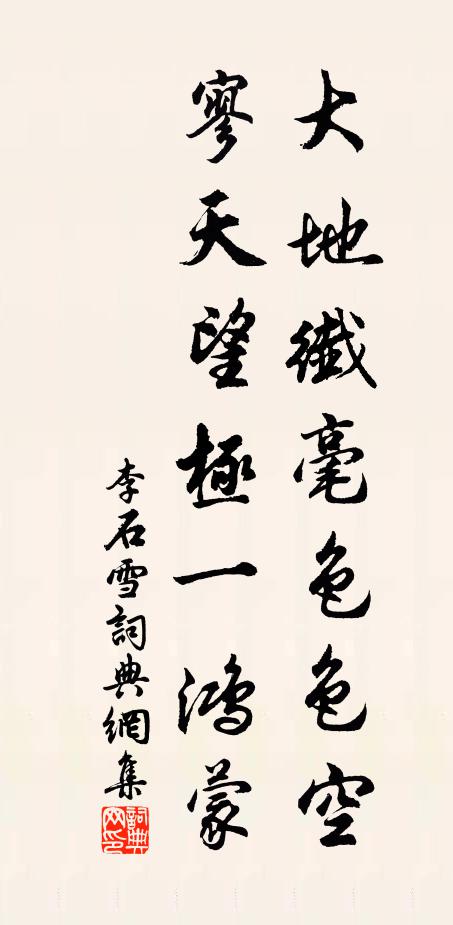 大地纖毫色色空
寥天望極一鴻蒙
李石雪詞典網集
詞典網印